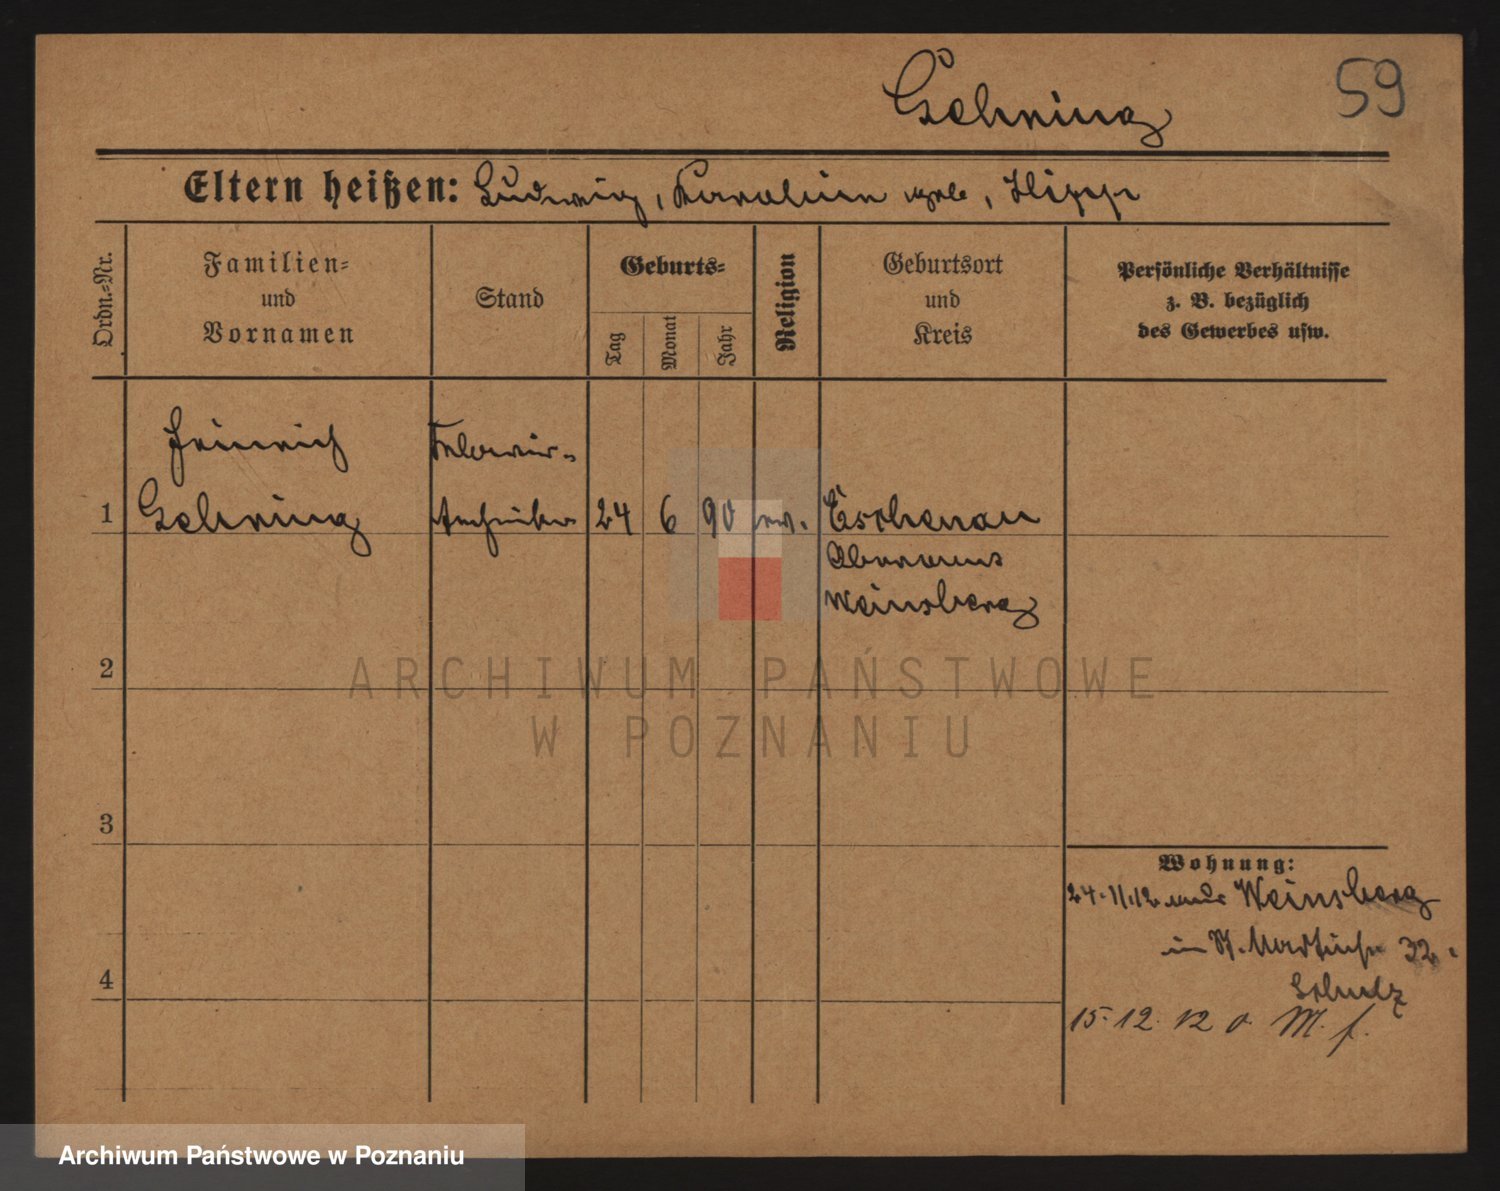 Gehring 59
Eltern heißen: Ludwig, Karoline geb., Hipp
Ordn.-Nr.
Familien-
und
Vornamen
Stand
Geburts-
Tag
Monat
Jahr
Religion
Geburtsort
und
Kreis
Persönliche Verhältnisse
z. B. bezüglich
des Gewerbes usw.
Heinrich
1 Gehring 24 6 90 ev. Eschenau
Oberamts
Weinsberg
2
3
4
Wohnung:
24.11.12 Weinsberg
in St. Martinstr 32.
Schulz
15.12.12 o. M. f.
ARCHIWUM PAŃSTWOWE
W POZNANIU
Archiwum Państwowe w Poznaniu